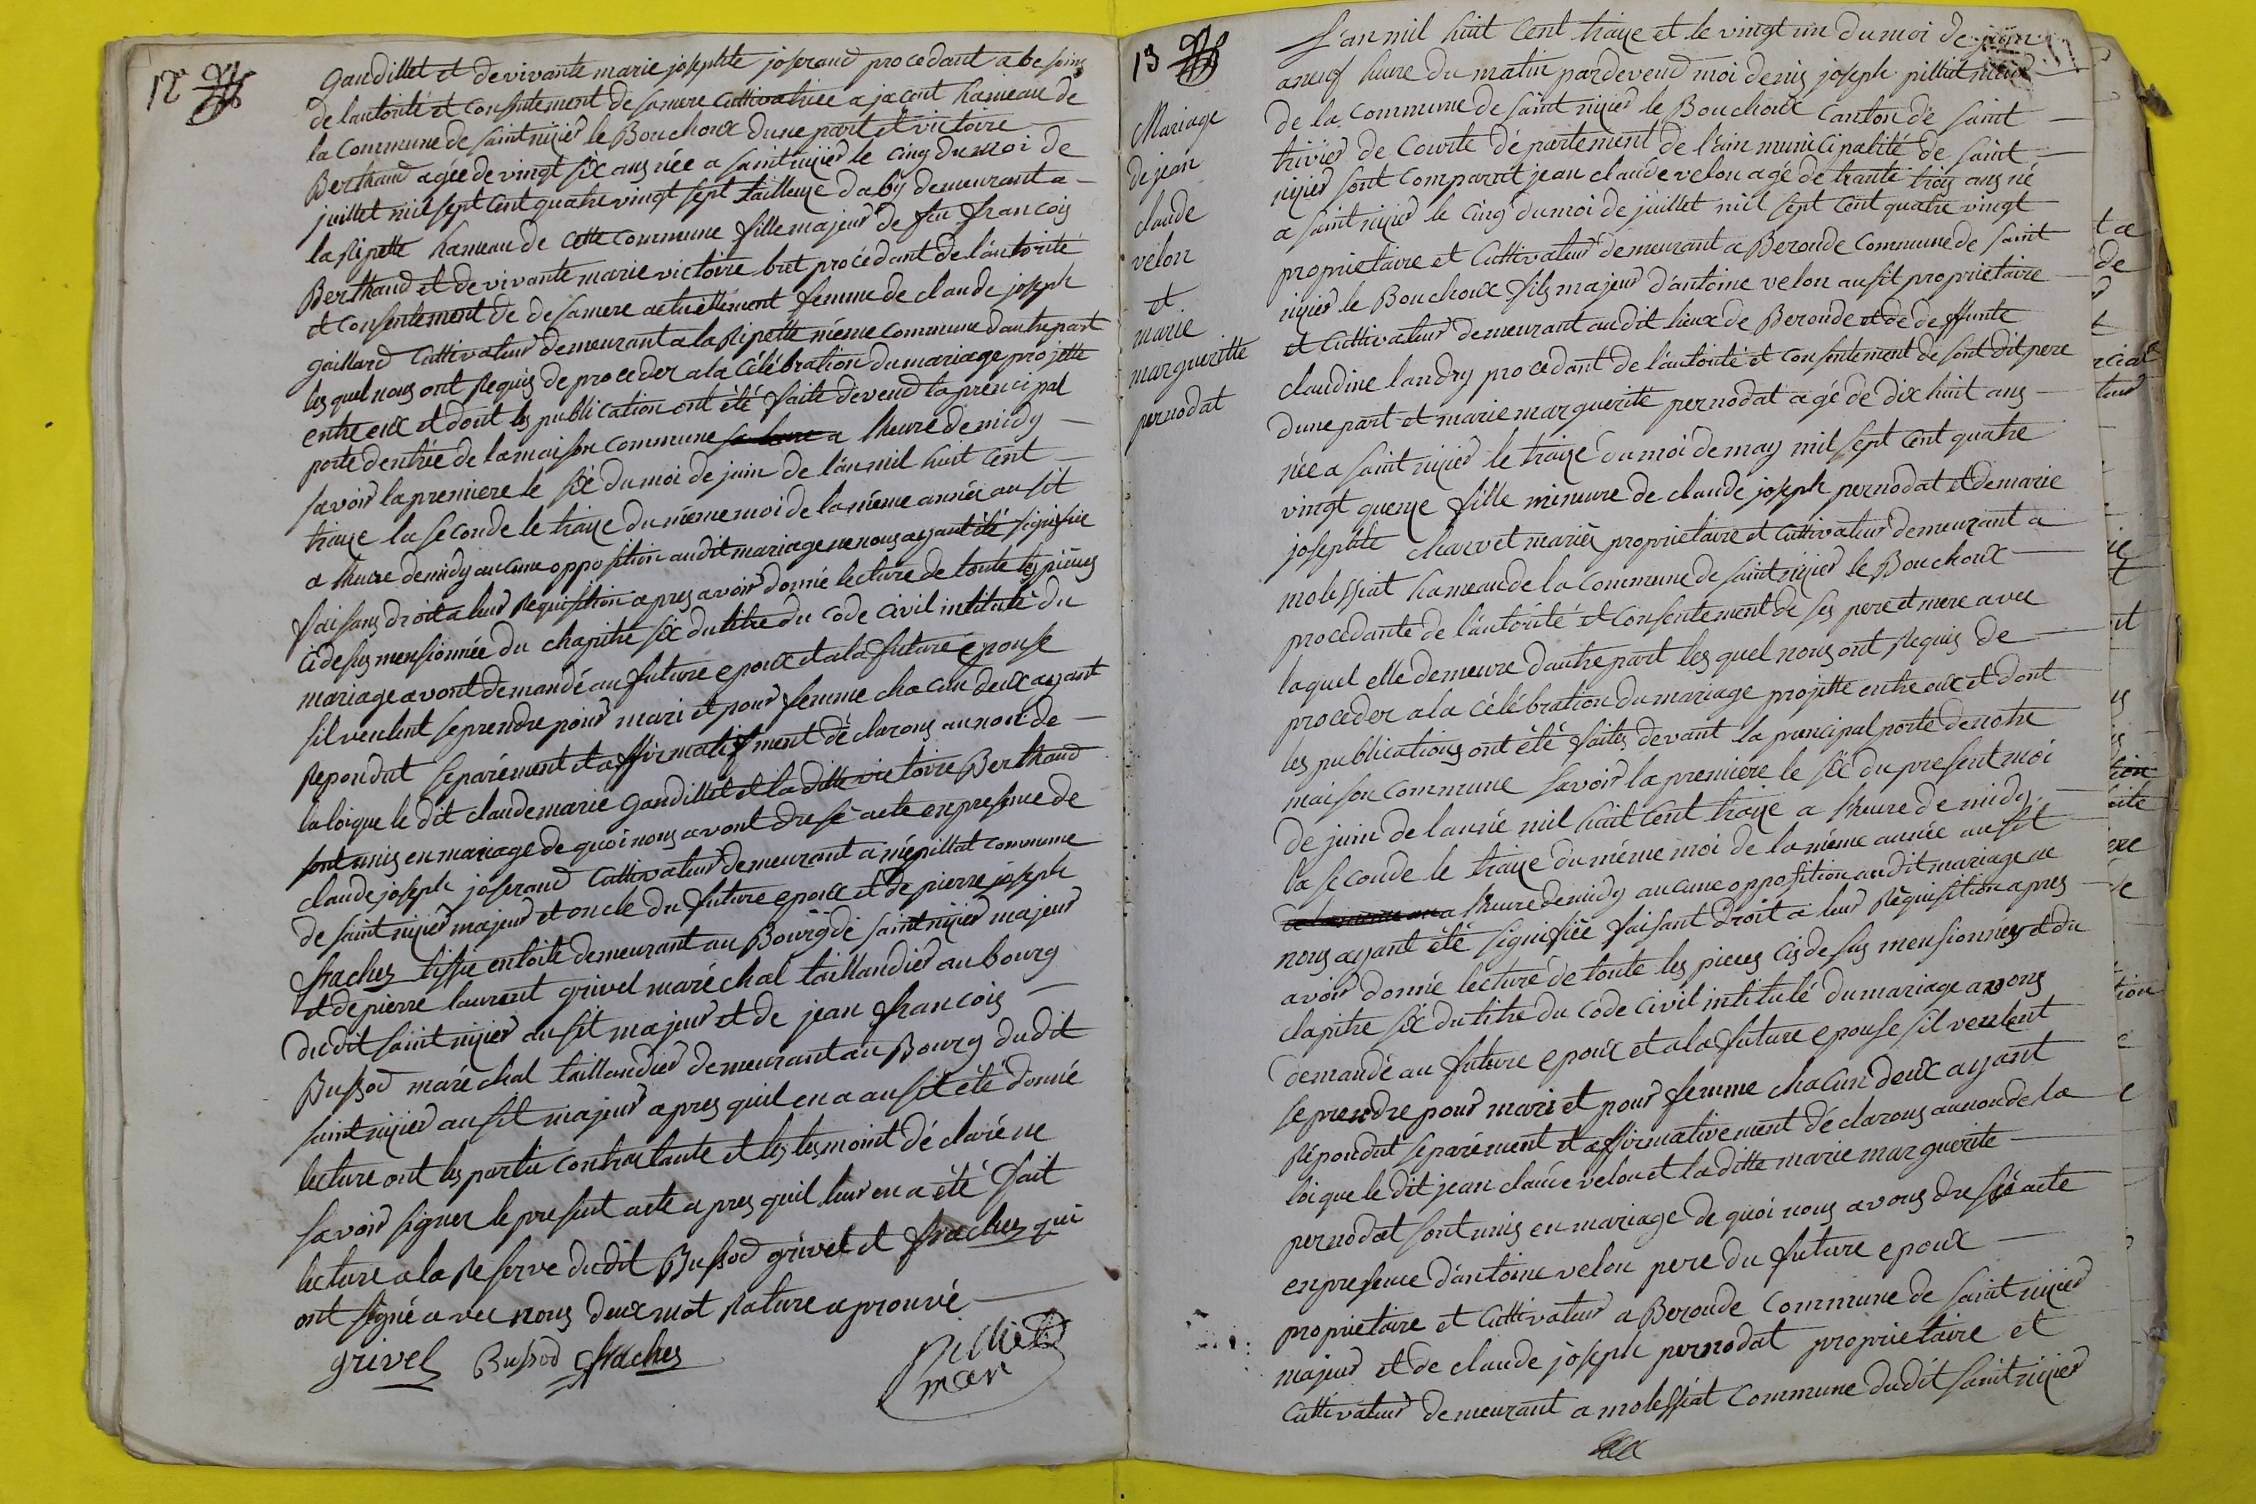 12
Gaudillet et de vivante marie josephte joserand procedant a be soins
de lautorité et Consentement de sa mere Cultivatrice a jacont hameau de
la Commune de saint nizier le Bouchoux dune part et victoire
Berthaud agée de vingt six ans née a saint nizier le cinq du moi de
juillet mil sept Cent quatre vingt sept tailleuze daby demeurant a
la Ripette hameau de Cette Commune fille majeur de feu francois
Berthaud et de vivante marie victoire but procédant de lautorité
et Consentement de de sa mere actuellement femme de claude joseph
gaillard Cultivateur demeurant a la Ripette méme Commune dautre part
les quel nous ont Requis de proceder a la Célébration du mariage projette
entre eux et dont les publication ont été faite devend la principal
porte dentrée de la maison Commune a lheure de midy
savoir la premiere le six du moi de juin de lan mil huit Cent
traize la seconde le traize du méme moi de la méme année ausit
a lheure de midy aucune opposition audit mariage ne nous ayant été signifiée
faisans droit a leur Requisition apres avoir donnée lecture de toute les pièces
ci desus mensionnée du chapitre six du titre du Code Civil intitulé du
mariage avont demandé au future epoux et a la future épouse
sil veulent se prendre pour mari et pour femme chacun deux ayant
Repondut separément et affirmatifment déclarons au nont de
la loi que le dit claude marie Gaudillet et la ditte victoire Berthaud
sont unis en mariage de quoi nous avont dresé acte en presence de
claude joseph joserand Cultivateur demeurant a mépillat commune
de saint nizier majeur et oncle du future epoux et de pierre joseph
fraches tissie en toile demeurant au Bourg de saint nizier majeur
et de pierre laurent grivel maréchal taillandier au bourg
du dit saint nizier ausit majeur et de jean francois
Bussod maréchal taillandier demeurant au Bourg du dit
saint nizier ausit majeur apres quil en a ausit été donné
lecture ont les partie contractante et les tesmoint déclaré ne
savoir signer le present acte apres quil leur en a été fait
lecture a la Reserve du dit Bussod grivel et fraches qui
ont signé avec nous deux mot Rature aprouvé
grivel Bussod fraches
pilliat
mer
13
Mariage
de jean
claude
velon
et
marie
margueritte
pernodat
L'an mil huit Cent traize et le vingt un du moi de juin
a neuf heure du matin par devend moi denis joseph pilliat maire
de la Commune de saint nizier le Bouchoux Canton de saint
trivier de Courte département de l'ain municipalité de saint
nizier sont comparut jean claude velon agé de trante trois ans né
a saint nizier le cinq du moi de juillet mil sept Cent quatre vingt
proprietaire et Cultivateur demeurant a Beronde Commune de saint
nizier le Bouchoux fils majeur d'antoine velon ausit proprietaire
et Cultivateur demeurant audit lieux de Beronde et de deffunte
claudine landry procedant de l'autorité et Consentement de sont dit pere
dune part et marie marguerite pernodat agé de dix huit ans
née a saint nizier le traize du moi de may mil sept Cent quatre
vingt quenze fille mineure de claude joseph pernodat et de marie
josephte charvet mariés proprietaire et Cultivateur demeurant a
molessiat hameau de la Commune de saint nizier le Bouchoux
procedante de l'autorité et Consentement de ses pere et mere avec
laquel elle demeure dautre part les quel nous ont Requis de
proceder a la célébration du mariage projette entre eux et dont
les publications ont été faites devant la principal porte de notre
maison Commune savoir la premiere le six du present moi
de juin de lannée mil huit Cent traize a lheure de midy
la seconde le traize du méme moi de la méme année ausit
a lheure de midy aucune opposition audit mariage ne
nous ayant été signifiée faisant droit a leur Réquisition apres
avoir donnée lecture de toute les pieces cis desus mensionnées et du
clapitre six du titre du Code Civil intitulé du mariage avons
demandé au future epoux et a la future epouse sil veulent
se prendre pour mari et pour femme chacun deux ayant
Répondut separément et affirmativement déclarons au nom de la
loi que le dit jean claude velon et la ditte marie marguerite
pernodat sont unis en mariage de quoi nous avons dressé acte
en presence d'antoine velon pere du future epoux
proprietaire et Cultivateur a Beronde Commune de saint nizier
majeur et de claude joseph pernodat proprietaire et
Cultivateur demeurant a molessiat Commune dudit saint nizier